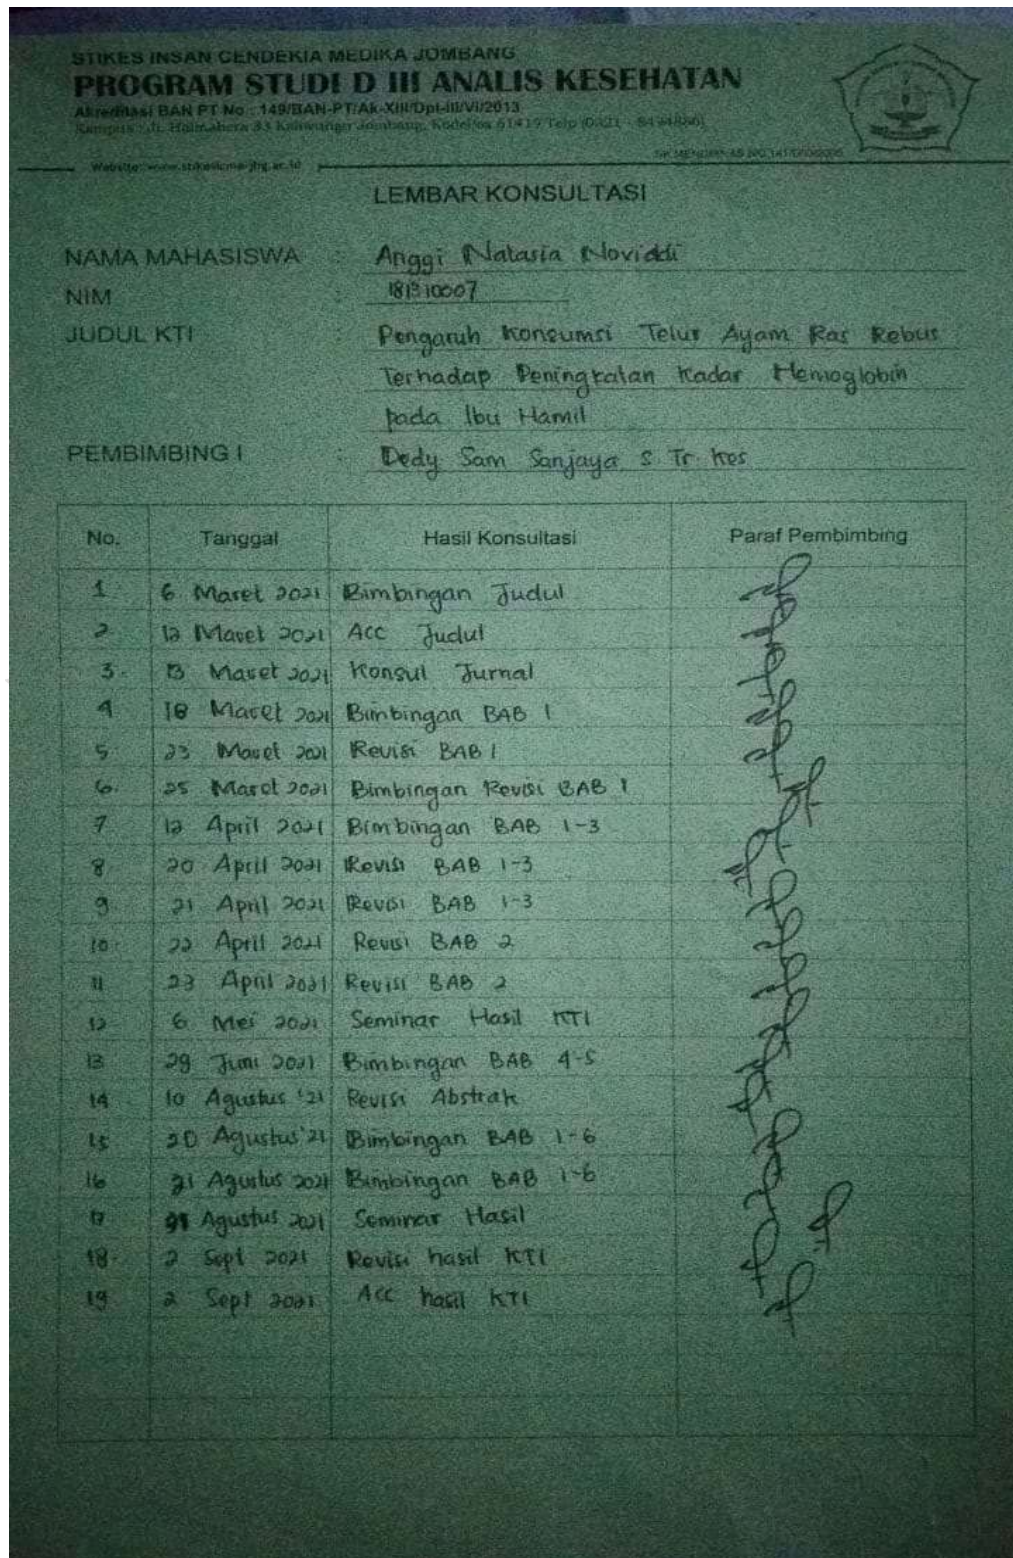 STIKES INSAN CENDEKIA MEDIKA JOMBANG
PROGRAM STUDI D III ANALIS KESEHATAN
Akreditasi BAN PT No : 149/BAN-PT/Ak-XIII/Dpl-III/VI/2013
Kampus : Jl. Halmahera 33 Kaliwungu Jombang, Kodepos 61419 Telp
Website: www.stikesicme-jbg.ac.id
LEMBAR KONSULTASI
NAMA MAHASISWA : Anggi Natasia Noviddi
NIM : 181310007
JUDUL KTI : Pengaruh Konsumsi Telur Ayam Ras Rebus
Terhadap Peningkatan Kadar Hemoglobin
pada Ibu Hamil
PEMBIMBING I : Dedy Sam Sanjaya S Tr Kes
No. Tanggal Hasil Konsultasi Paraf Pembimbing
1 6 Maret 2021 Bimbingan Judul
2 12 Maret 2021 Acc Judul
3. 13 Maret 2021 Konsul Jurnal
4 18 Maret 2021 Bimbingan BAB 1
5 23 Maret 2021 Revisi BAB 1
6. 25 Maret 2021 Bimbingan Revisi BAB 1
7 12 April 2021 Bimbingan BAB 1-3
8 20 April 2021 Revisi BAB 1-3
9 21 April 2021 Revisi BAB 1-3
10 22 April 2021 Revisi BAB 2
11 23 April 2021 Revisi BAB 2
12 6 Mei 2021 Seminar Hasil KTI
13 29 Juni 2021 Bimbingan BAB 4-5
14 10 Agustus '21 Revisi Abstrak
15 20 Agustus '21 Bimbingan BAB 1-6
16 21 Agustus 2021 Bimbingan BAB 1-6
17 Agustus 2021 Seminar Hasil
18. 2 Sept 2021 Revisi hasil KTI
19 2 Sept 2021 Acc hasil KTI